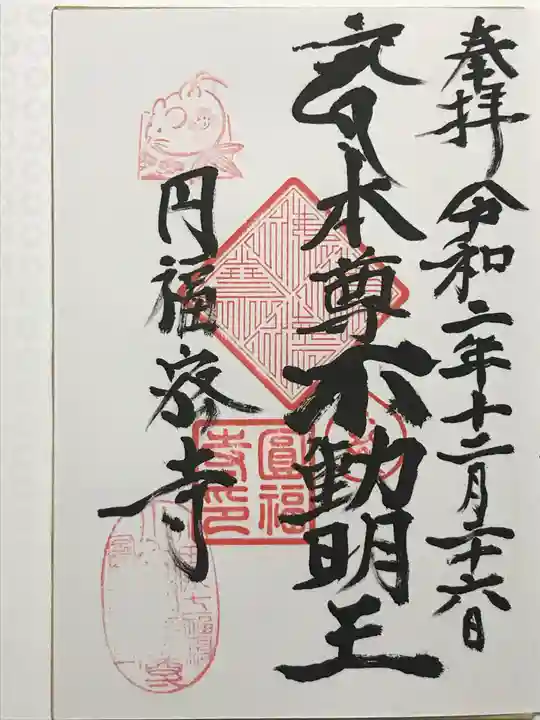 奉拝 令和二年十二月二十六日
本尊不動明王
円福密寺
圓福
寺印
七福